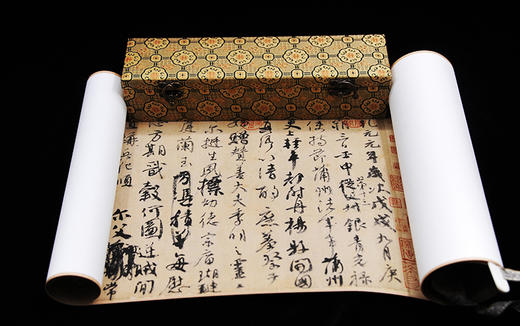 乾元元年歲次戊戌九月庚
三日壬申從父銀青光祿
使持節蒲州諸軍事蒲州
史上輕車都尉丹楊縣開國
以清酌庶羞祭于
贈贊善大夫季明之靈
尔挺生夙標幼德宗廟瑚璉
庭蘭玉每慰
心方期戩穀何圖逆賊間
兵犯順尔父常